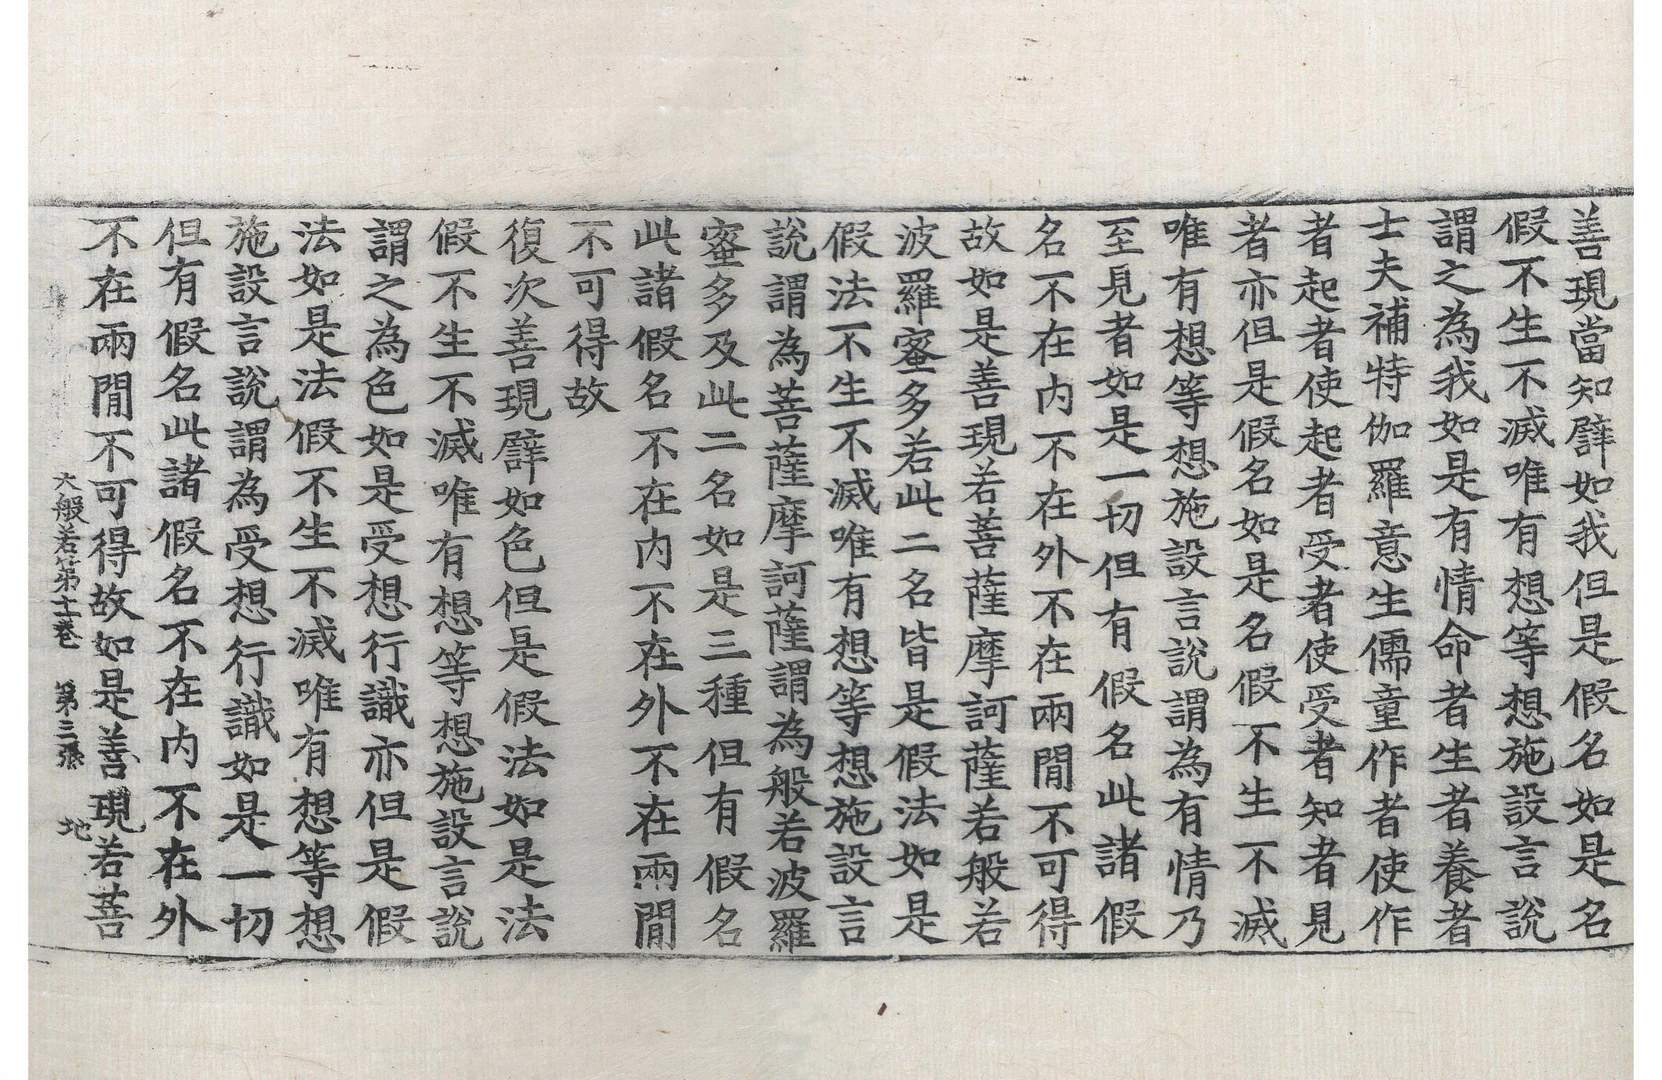 善現當知譬如我但是假名如是名
假不生不滅唯有想等想施設言說
謂之為我如是有情命者生者養者
士夫補特伽羅意生儒童作者使作
者起者使起者受者使受者知者見
者亦但是假名如是名假不生不滅
唯有想等想施設言說謂為有情乃
至見者如是一切但有假名此諸假
名不在內不在外不在兩閒不可得
故如是善現若菩薩摩訶薩若般若
波羅蜜多若此二名皆是假法如是
假法不生不滅唯有想等想施設言
說謂為菩薩摩訶薩謂為般若波羅
蜜多及此二名如是三種但有假名
此諸假名不在內不在外不在兩閒
不可得故
復次善現譬如色但是假法如是法
假不生不滅唯有想等想施設言說
謂之為色如是受想行識亦但是假
法如是法假不生不滅唯有想等想
施設言說謂為受想行識如是一切
但有假名此諸假名不在內不在外
不在兩閒不可得故如是善現若菩
大般若第十一卷 第三張 地